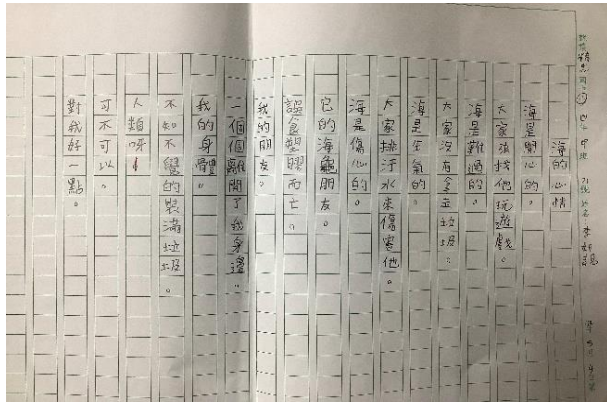 甲 姓名 李
海的心情
海是開心的。
大家找他玩遊戲。
海是難過的。
大家沒有拿走垃圾。
海是生氣的。
大家排汙水來傷害他。
海是傷心的。
它的海龜朋友。
誤食塑膠而亡。
我的朋友。
一個個離開了我身邊。
我的身體。
不知不覺的裝滿垃圾。
人類呀！
可不可以。
對我好一點。